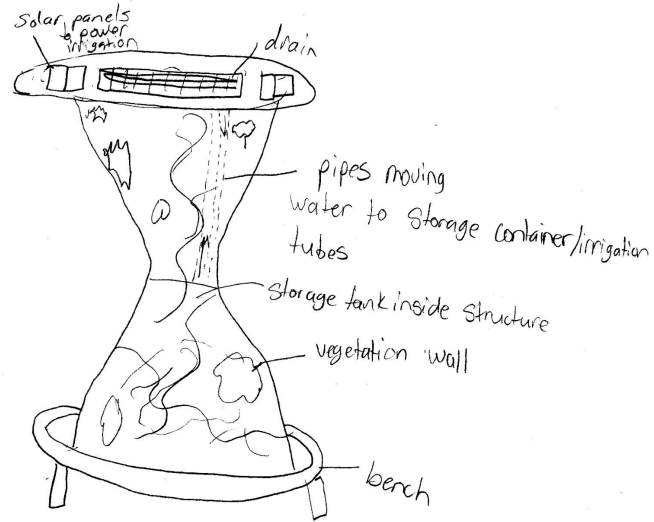 Solar panels
to power
irrigation
drain
pipes moving
water to storage container/irrigation
tubes
storage tank inside structure
vegetation wall
bench